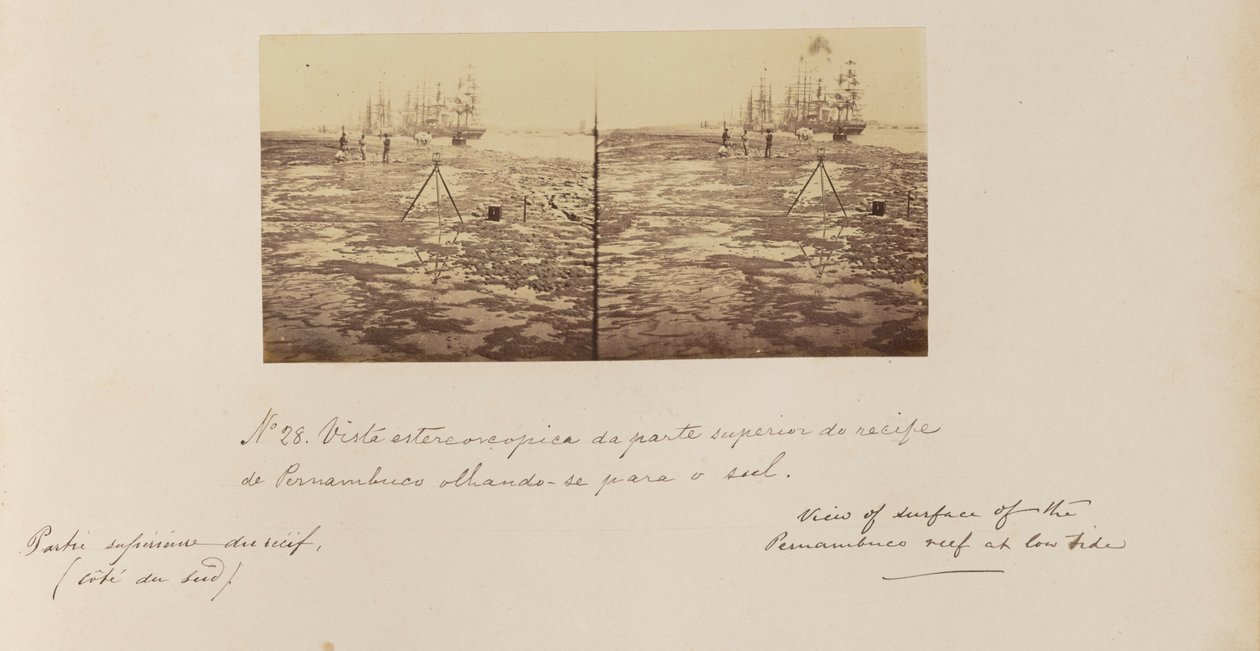 Nº 28. Vista estereoscopica da parte superior do recife
de Pernambuco olhando-se para o sul.
Partie supérieure du récif,
(côté du sud)
View of surface of the
Pernambuco reef at low tide